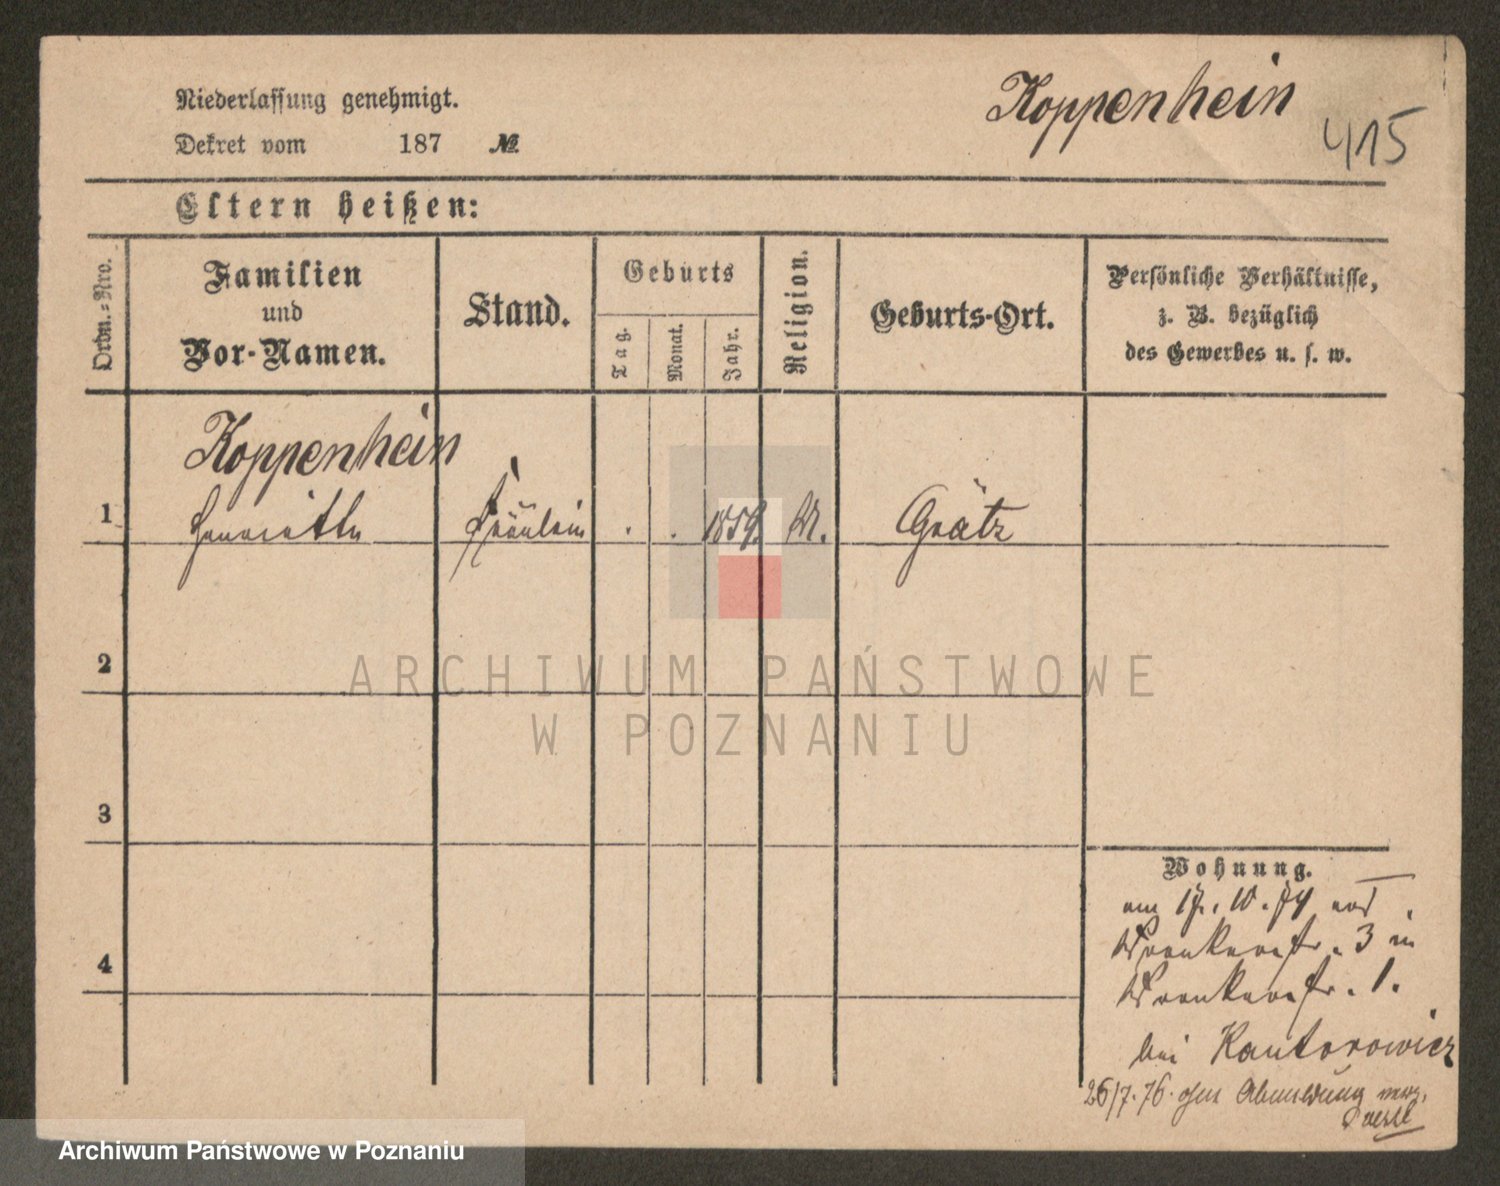 Koppenhein
415
Niederlassung genehmigt.
Dekret vom 187 №
Eltern heißen:
Ordn.-Nro.
Familien
und
Vor-Namen.
Stand.
Geburts
Tag.
Monat.
Jahr.
Religion.
Geburts-Ort.
Persönliche Verhältnisse,
z. B. bezüglich
des Gewerbes u. s. w.
Koppenhein
1 Henriette Fräulein . . 1859. M. Grätz
2
3
4
Wohnung.
am 17. 10. 74 von
Wronkerstr. 3 in
Wronkerstr. 1.
bei Kantorowicz
26/7. 76. ohne Abmeldung
ARCHIWUM PAŃSTWOWE
W POZNANIU
Archiwum Państwowe w Poznaniu